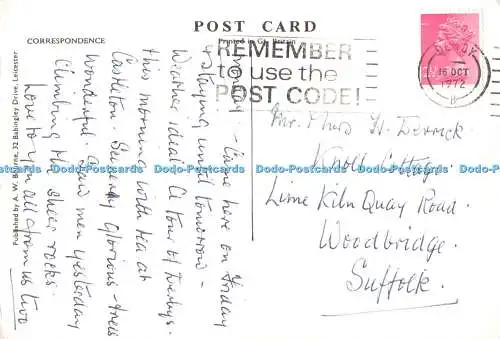 POST CARD
CORRESPONDENCE
Printed in Gt. Britain
REMEMBER
to use the
POST CODE!
16 OCT
1972
Monday - Came here on Friday
& staying until tomorrow -
Weather ideal. A tour of Derbys.
this morning with tea at
Castleton. Scenery glorious - trees
wonderful. Saw men yesterday
Climbing the sheer rocks.
Love to you all from us two
Mr. & Mrs H. Derrick
Knoll Cottage,
Lime Kiln Quay Road.
Woodbridge.
Suffolk.
Published by A. W. Bourne, 32 Babingley Drive, Leicester
Postcards www.id-postcards.com